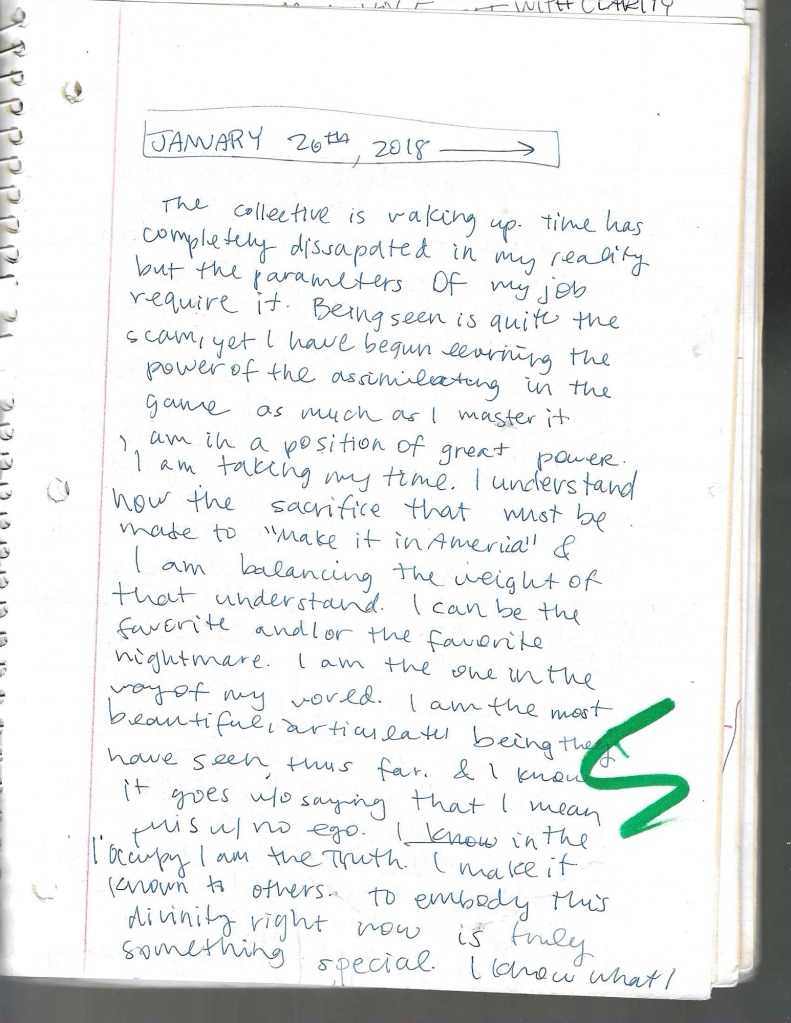 WITH CLARITY
JANUARY 26TH, 2018 →
The collective is waking up. Time has
completely dissapated in my reality
but the parameters Of my job
require it. Being seen is quite the
scam, yet I have begun learning the
power of the assimilating in the
game as much as I master it
I am in a position of great power.
I am taking my time. I understand
now the sacrifice that must be
made to "make it in America" &
I am balancing the weight of
that understand. I can be the
favorite and/or the favorite
nightmare. I am the one in the
way of my world. I am the most
beautiful, articulate being they
have seen thus far. & I know
it goes w/o saying that I mean
this w/ no ego. I know in the
I occupy I am the Truth. I make it
known to others. To embody this
divinity right now is truly
something special. I know what I